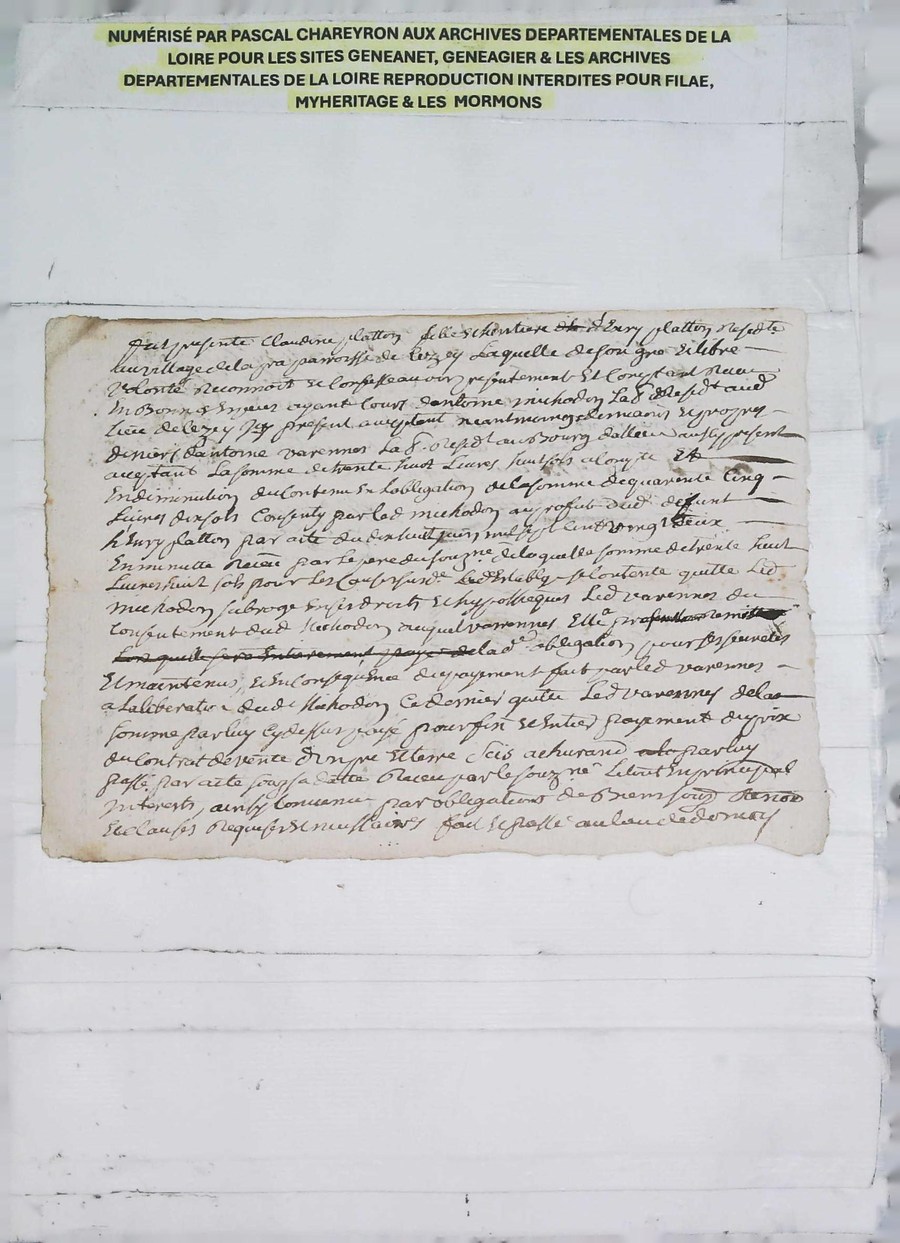 NUMÉRISÉ PAR PASCAL CHAREYRON AUX ARCHIVES DEPARTEMENTALES DE LA
LOIRE POUR LES SITES GENEANET, GENEAGIER & LES ARCHIVES
DEPARTEMENTALES DE LA LOIRE REPRODUCTION INTERDITES POUR FILAE,
MYHERITAGE & LES MORMONS
fut presente Claudine platton fille et heritiere d'heury platton
au village de la parroisse de Lezzey laquelle de son gre et libre
volonté reconnoit et confesse avoir presentement et comptant receu
en bonnes especes ayant cours d'antoine michodon lab. resid.t aud
lieu de Lezey present acceptant neantmoings des mains et propres
deniers d'antoine varennes lab. resid.t au Bourg d'allieu aussy present
acceptant la somme de trente huit Livres huit sols a compte et
en diminution du contenu en Lobligation de la somme de quarente Cinq
Livres dix sols consenty par led michodon au profit dud deffunt
heury platton par acte du dixhuit juin mil sept cent vingt deux
en minutte receu par le pere du souzné de laquelle somme de trente huit
Livres huit sols pour les causes se contente quitte led
michodon subroge en ses droits et hypotheques led varennes du
consentement dud Michodon auquel varennes Elle
lad.e obligation pour ses seuretés
et maintenüe, et en consequence du payement fait par led varennes
a la liberation dud Michodon ce dernier quitte led varennes de la
somme par luy cy dessus payé pour fin et entier payement du prix
du contrat de vente d'un pré et terre scis a churand par luy
passé par acte datte receu par le souzné Le tout en principal
interests, ainsy convenu par obligations de biens
et clauses requises et necessaires fait et passé au lieu de